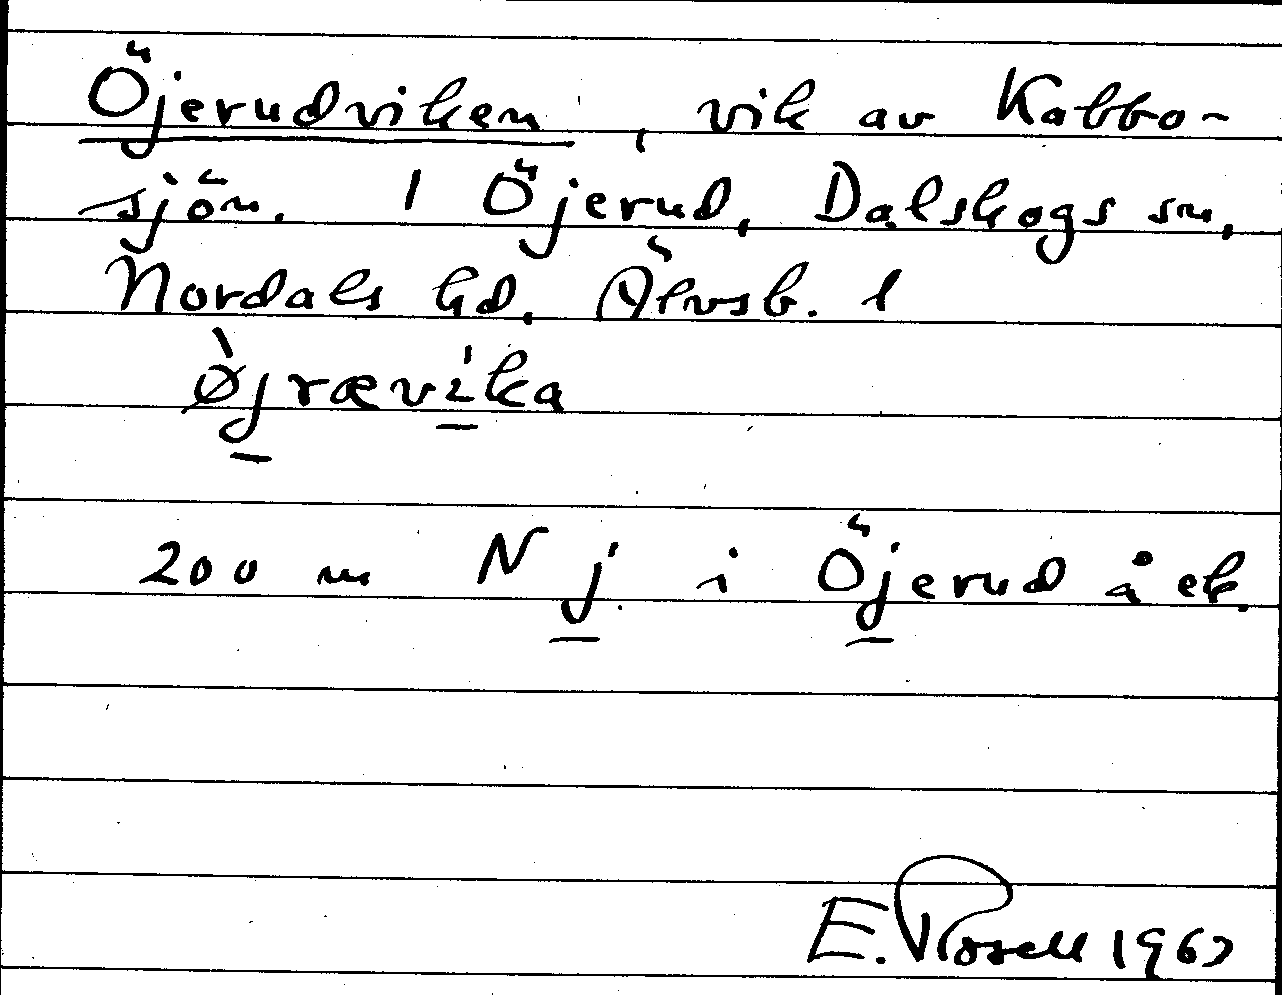 Öjerudviken, vik av Kabbo-
sjön. 1 Öjerud, Dalskogs sn,
Nordals hd, Älvsb. l
Øjrævika
200 m N j. i Öjerud å ek.
E. Rosell 1967